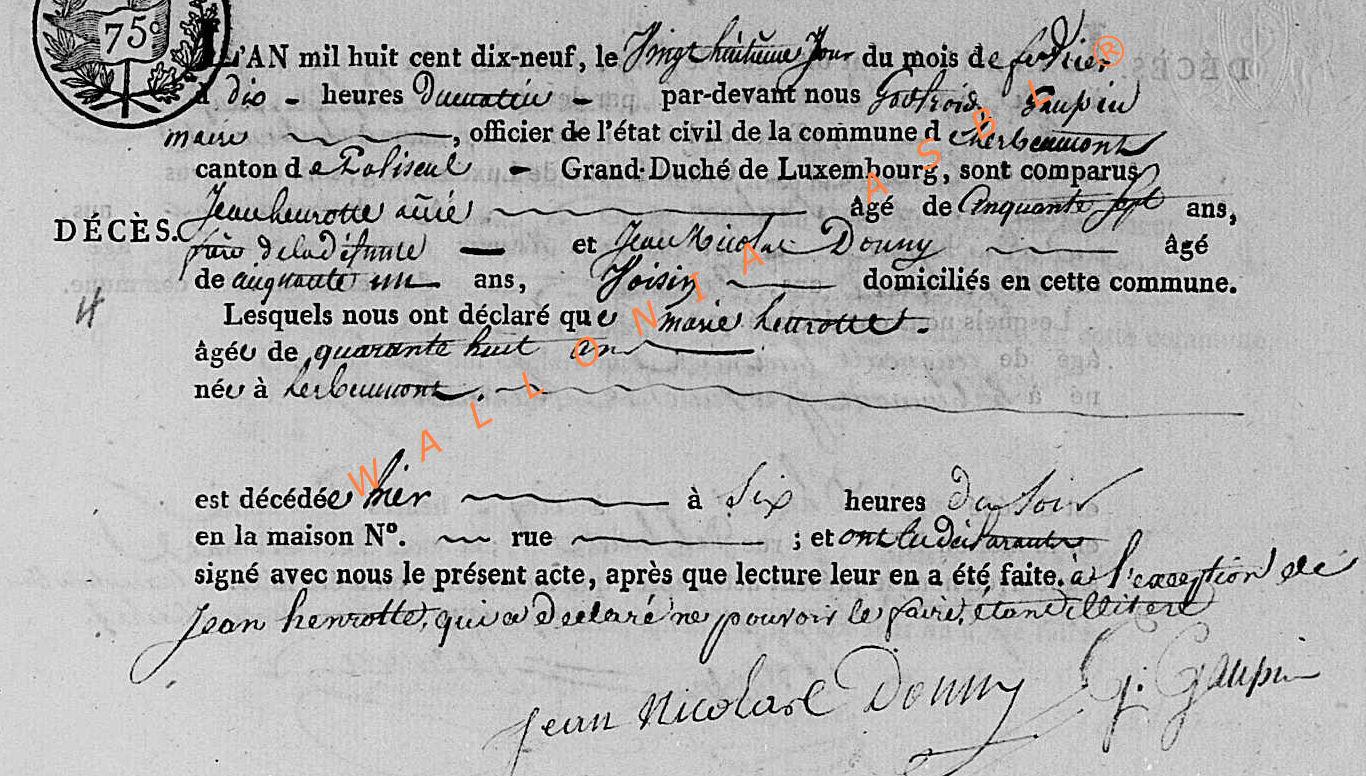 75c
L'AN mil huit cent dix-neuf, le Vingt huitieme Jour du mois de fevrier
à dix - heures Dumatin - par-devant nous Godfroid Gaupin
maire, officier de l'état civil de la commune d'herbeumont
canton de Paliseul - Grand-Duché de Luxembourg, sont comparus
Jean henrotte ainé âgé de Cinquante Sept ans,
DÉCÈS. frère de la défunte et Jean Nicolas Donny âgé
de cinquante un ans, Voisin domiciliés en cette commune.
4
Lesquels nous ont déclaré que marie henrotte.
âgée de quarante huit ans
née à herbeumont.
est décédée hier à Six heures du Soir
en la maison N°. rue ; et ont les déclarants
signé avec nous le présent acte, après que lecture leur en a été faite. à l'exception de
Jean henrotte, qui a declaré ne pouvoir le faire, étant illiteré
Jean Nicolase Donny G. Gaupin
WALLONIA ASBL ®